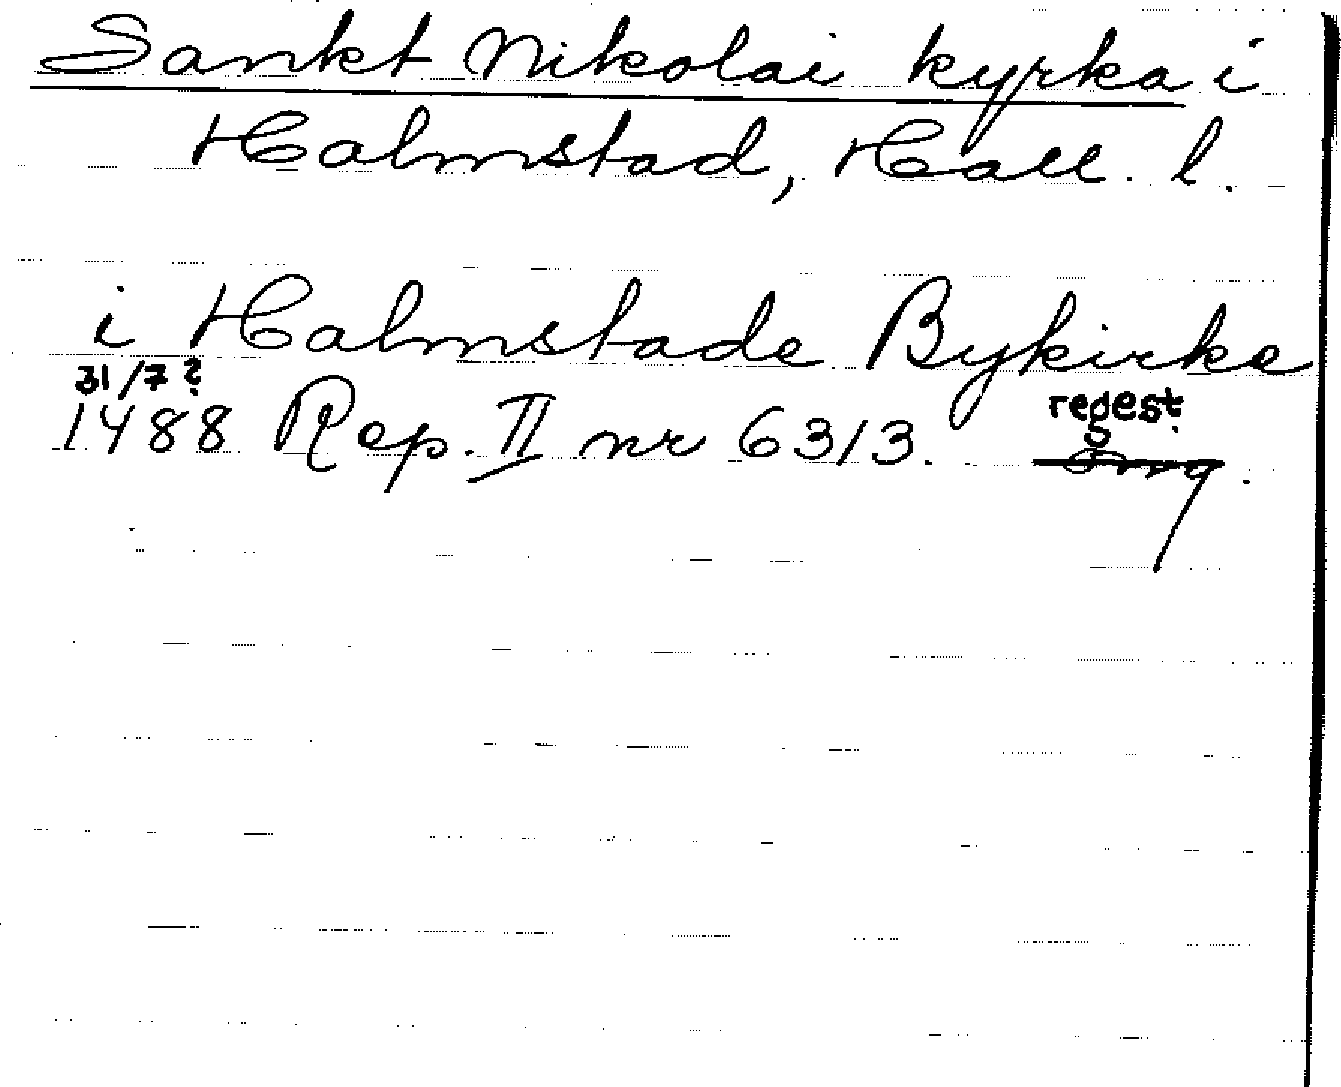 Sankt Nikolai kyrka i
Halmstad, Hall. l.
i Halmstade Bykirke
31/7?
1488 Rep. II nr 6313.
regest.